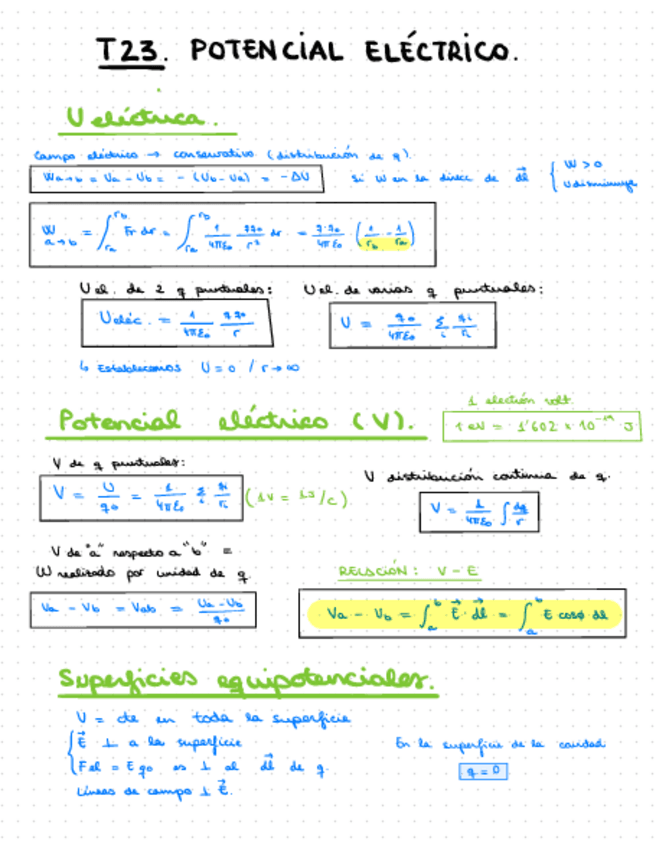 T23. POTENCIAL ELÉCTRICO.
U eléctrica.
Campo eléctrico → conservativo (distribución de q).
Wa→b = Ua - Ub = - (Ub - Ua) = -ΔU
Si W en la direcc de dl⃗ { W > 0
U disminuye
W a→b = ∫_ra^rb Fr dr = ∫_ra^rb 1/4πε₀ qq₀/r² dr = q·q₀/4πε₀ (1/rb - 1/ra)
U el. de 2 q puntuales:
U eléc. = 1/4πε₀ qq₀/r
↳ Establecemos U=0 / r→∞
U el. de varias q puntuales:
U = q₀/4πε₀ Σi qi/ri
1 electrón volt.
1 eV = 1'602 × 10⁻¹⁹ J
Potencial eléctrico (V).
V de q puntuales:
V = U/q₀ = 1/4πε₀ Σi qi/ri (1V = 1J/C)
V distribución continua de q.
V = 1/4πε₀ ∫ dq/r
V de "a" respecto a "b" =
W realizado por unidad de q.
Va - Vb = Vab = Ua-Ub/q₀
RELACIÓN: V - E
Va - Vb = ∫_a^b E⃗ · dl⃗ = ∫_a^b E cosφ dl
Superficies equipotenciales.
V = cte en toda la superficie
{ E⃗ ⊥ a la superficie
Fel = Eq₀ es ⊥ al dl⃗ de q.
Líneas de campo ⊥ E⃗.
En la superficie de la cavidad
q = 0